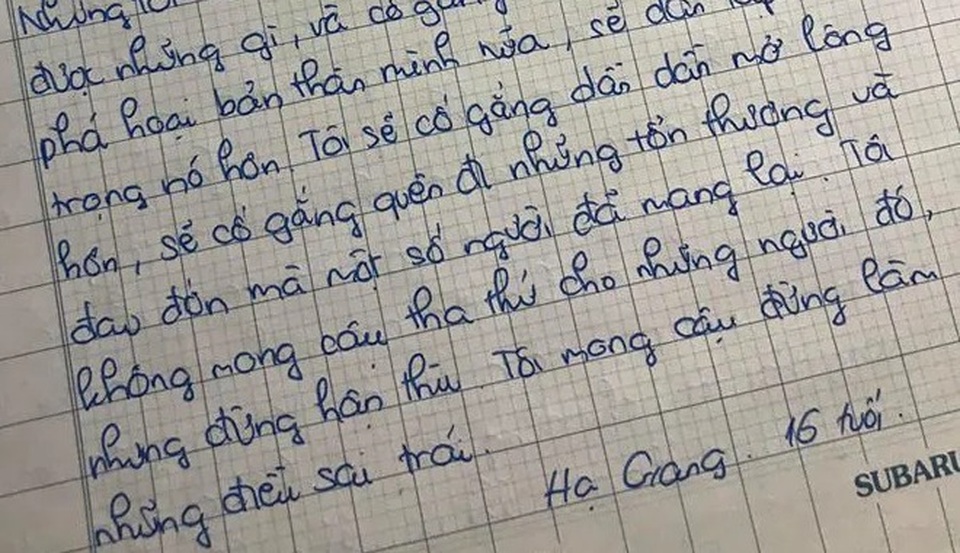 Những
được những gì, và cố gắng
phá hoại bản thân mình nữa, sẽ dần
trọng nó hơn. Tôi sẽ cố gắng dần dần mở lòng
hơn, sẽ cố gắng quên đi những tổn thương và
đau đớn mà một số người đã mang lại. Tôi
không mong cậu tha thứ cho những người đó,
nhưng đừng hận thù. Tôi mong cậu đừng làm
những điều sai trái.
Hạ Giang. 16 tuổi.
SUBARU